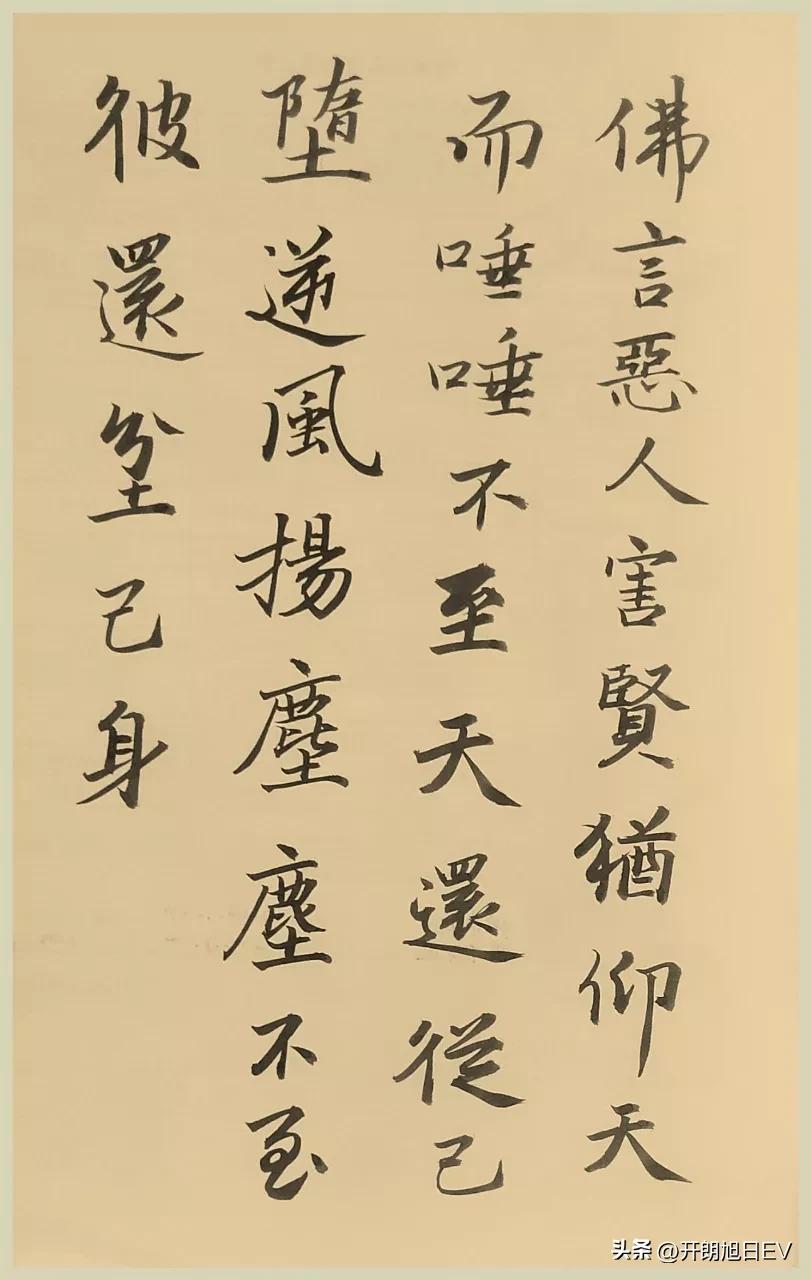 佛言惡人害賢猶仰天
而唾唾不至天還從己
墮逆風揚塵塵不至
彼還坌己身
头条 @开朗旭日EV